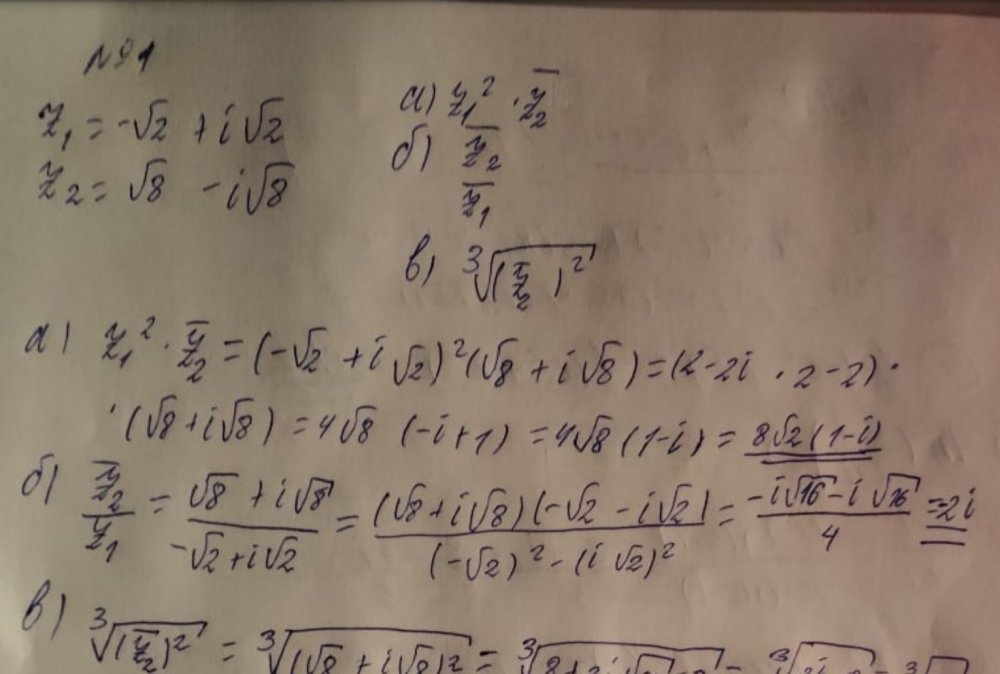 №1
z₁ = -√2 + i√2
z₂ = √8 - i√8
а) z₁² · z̄₂
б) z̄₂ / z̄₁
в) ∛(z̄₂)²
а) z₁² · z̄₂ = (-√2 + i√2)²(√8 + i√8) = (2 - 2i · 2 - 2) ·
· (√8 + i√8) = 4√8 (-i + 1) = 4√8 (1 - i) = 8√2 (1 - i)
б) z̄₂ / z₁ = (√8 + i√8) / (-√2 + i√2) = (√8 + i√8)(-√2 - i√2) / ((-√2)² - (i√2)²) = (-i√16 - i√16) / 4 = -2i
в) ∛(z̄₂)² = ∛(√8 + i√8)² =